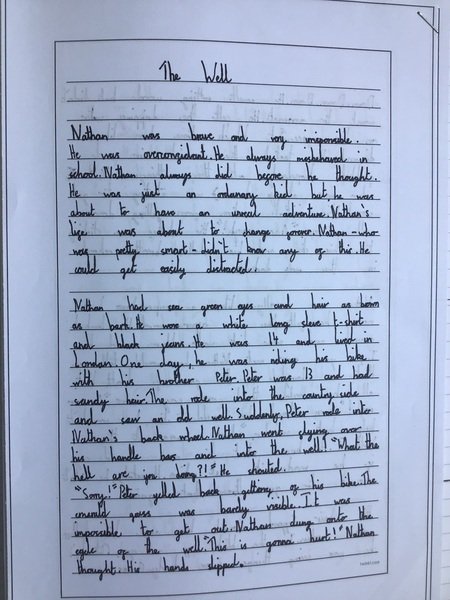 The Well
Nathan was brave and very irresponsible.
He was overconfident. He always misbehaved in
school. Nathan always did before he thought.
He was just an ordanary kid but, he was
about to have an unreal adventure. Nathan's
life was about to change forever. Nathan - who
were pretty smart - didn't know any of this. He
could get easily distracted.
Nathan had sea green eyes and hair as brown
as bark. He wore a white long sleve t-shirt
and black jeans. He was 14 and lived in
London. One day, he was riding his bike
with his brother Peter. Peter was 13 and had
sandy hair. The rode into the country side
and saw an old well. Suddenly, Peter rode into
Nathan's back wheel. Nathan went flying over
his handle bars and into the well! "What the
hell are you doing?!" He shouted.
"Sorry!" Peter yelled back getting of his bike. The
emerald grass was barely visible. It was
impossible to get out. Nathan clung onto the
egde of the well. "This is gonna hurt!" Nathan
thought. His hands slipped.
twinkl.com